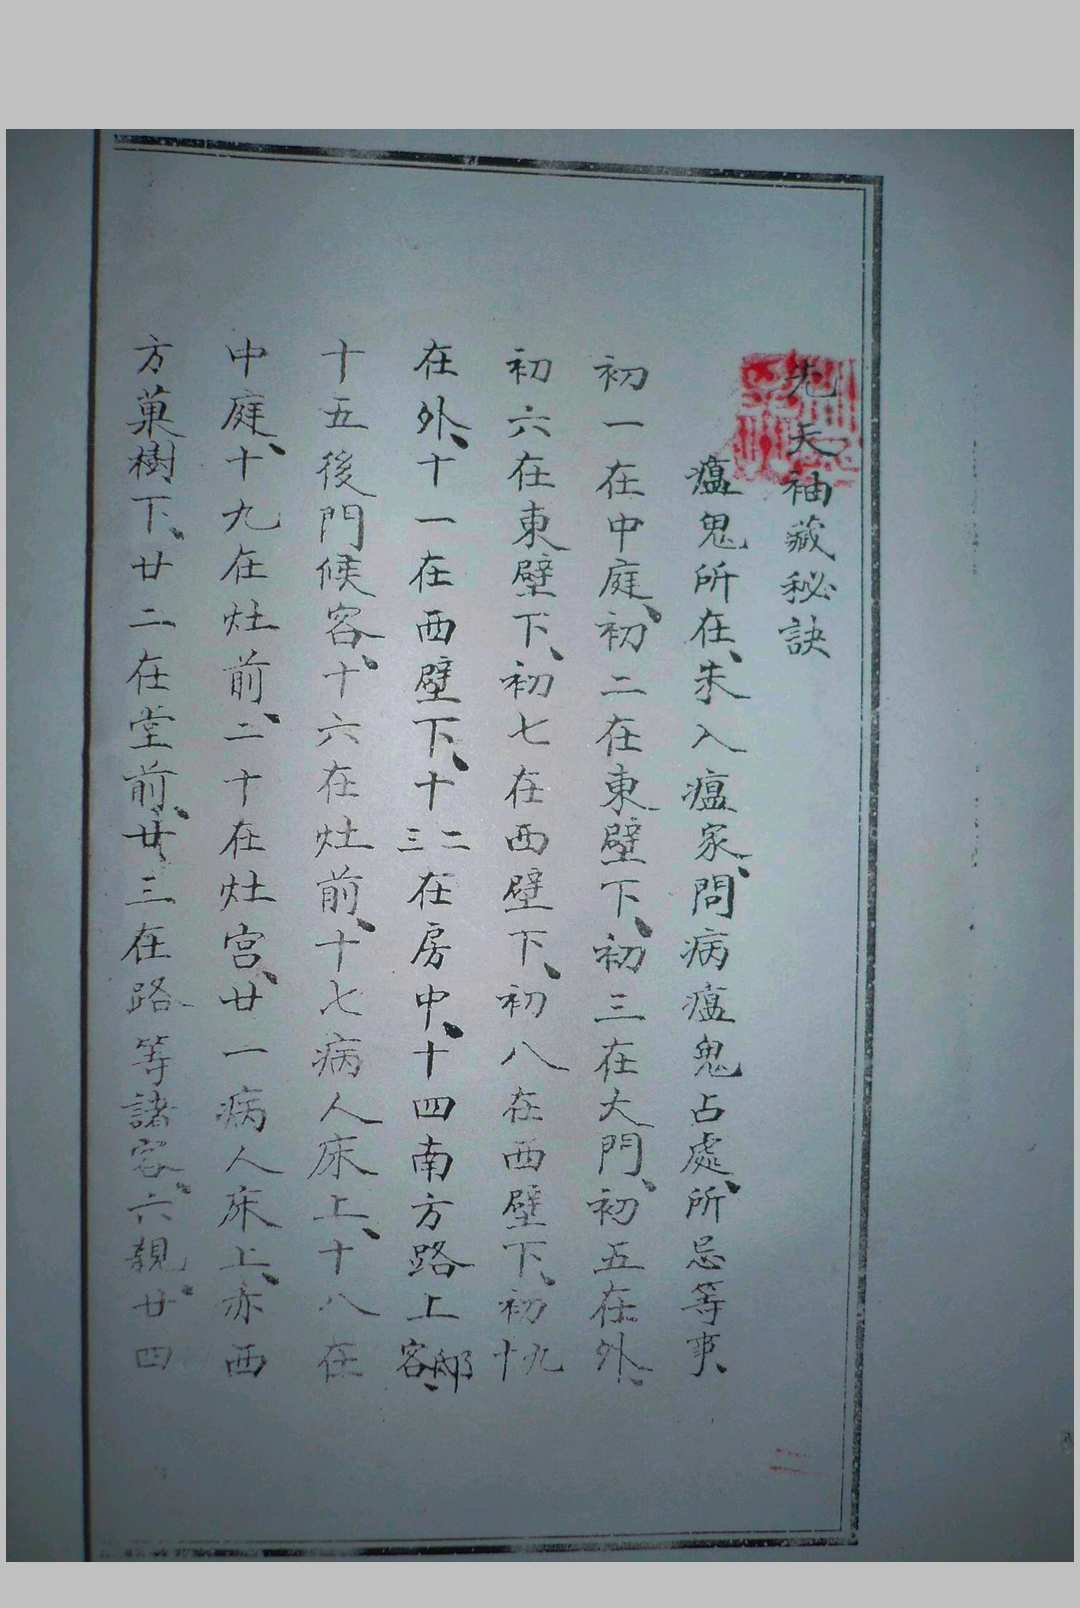 先天袖藏秘訣
瘟鬼所在、未入瘟家、問病瘟鬼占處、所忌等事、
初一在中庭、初二在東壁下、初三在大門、初五在外、
初六在東壁下、初七在西壁下、初八在西壁下、初九十
在外、十一在西壁下、十二三在房中、十四南方路上邸客、
十五後門候客、十六在灶前、十七病人床上、十八在
中庭、十九在灶前、二十在灶宮、廿一病人床上、亦西
方菓樹下、廿二在堂前、廿三在路等諸客、六親、廿四